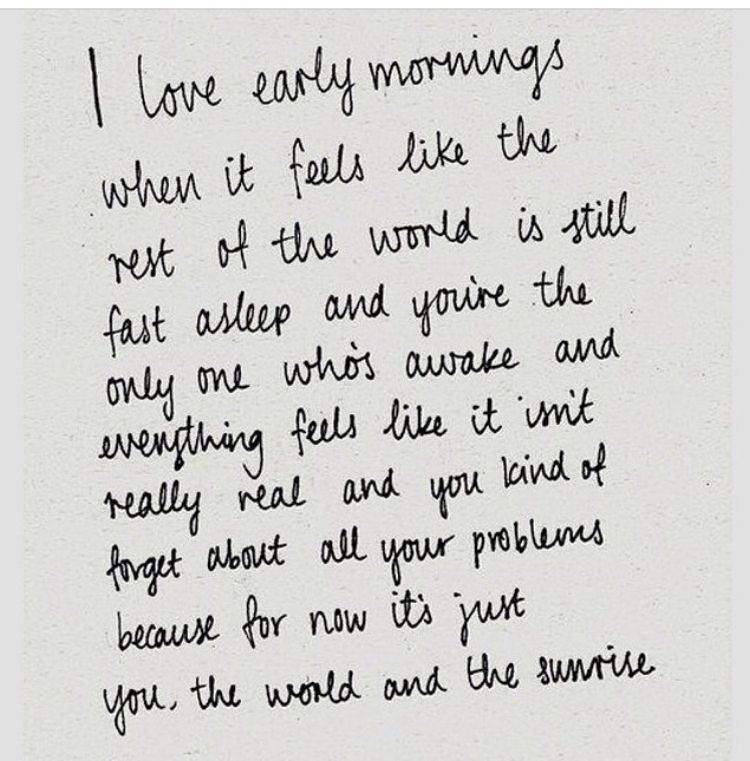 I love early mornings
when it feels like the
rest of the world is still
fast asleep and you're the
only one who's awake and
everything feels like it isn't
really real and you kind of
forget about all your problems
because for now it's just
you, the world and the sunrise